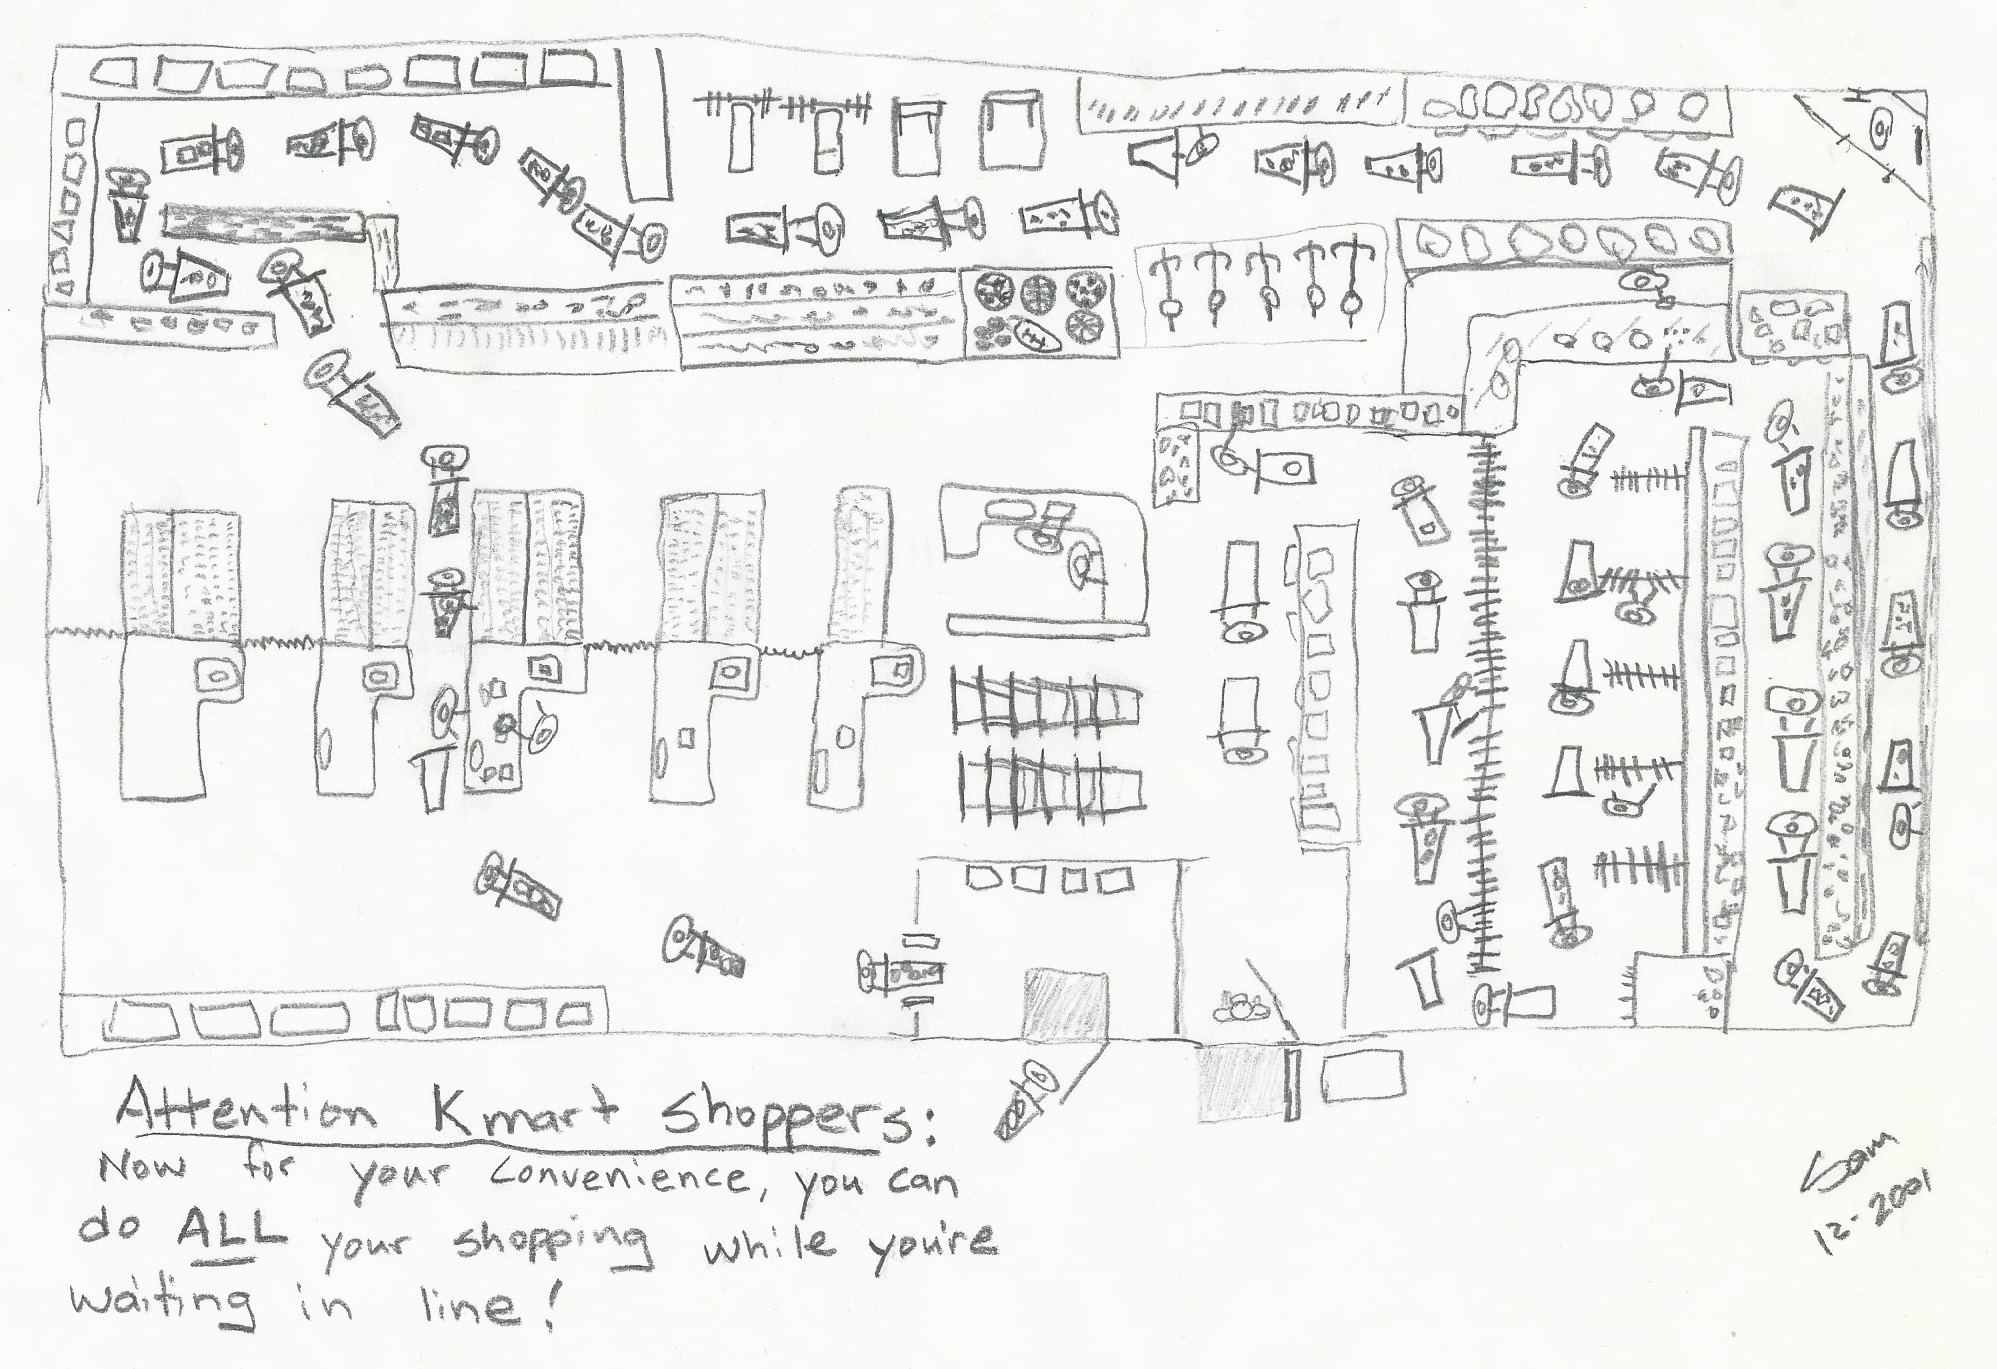 Attention Kmart Shoppers:
Now for your convenience, you can
do ALL your shopping while you're
waiting in line!
Sam
12-2001